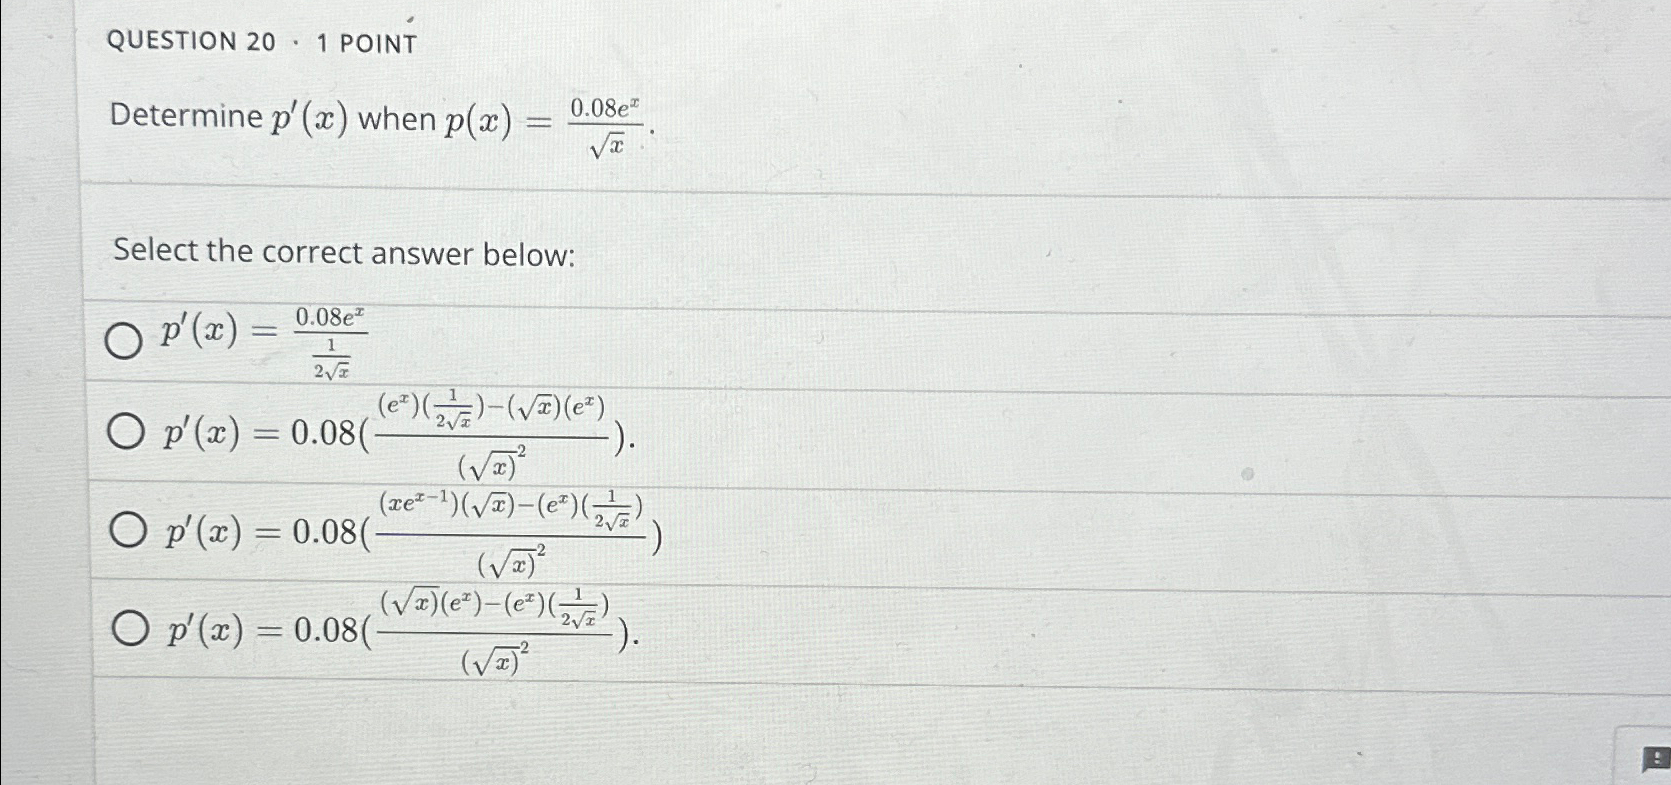 QUESTION 20 · 1 POINT
Determine p′(x) when p(x) = \frac{0.08e^x}{\sqrt{x}}.
Select the correct answer below:
p′(x) = \frac{0.08e^x}{\frac{1}{2\sqrt{x}}}
p′(x) = 0.08(\frac{(e^x)(\frac{1}{2\sqrt{x}})-(\sqrt{x})(e^x)}{(\sqrt{x})^2}).
p′(x) = 0.08(\frac{(xe^{x-1})(\sqrt{x})-(e^x)(\frac{1}{2\sqrt{x}})}{(\sqrt{x})^2})
p′(x) = 0.08(\frac{(\sqrt{x})(e^x)-(e^x)(\frac{1}{2\sqrt{x}})}{(\sqrt{x})^2}).